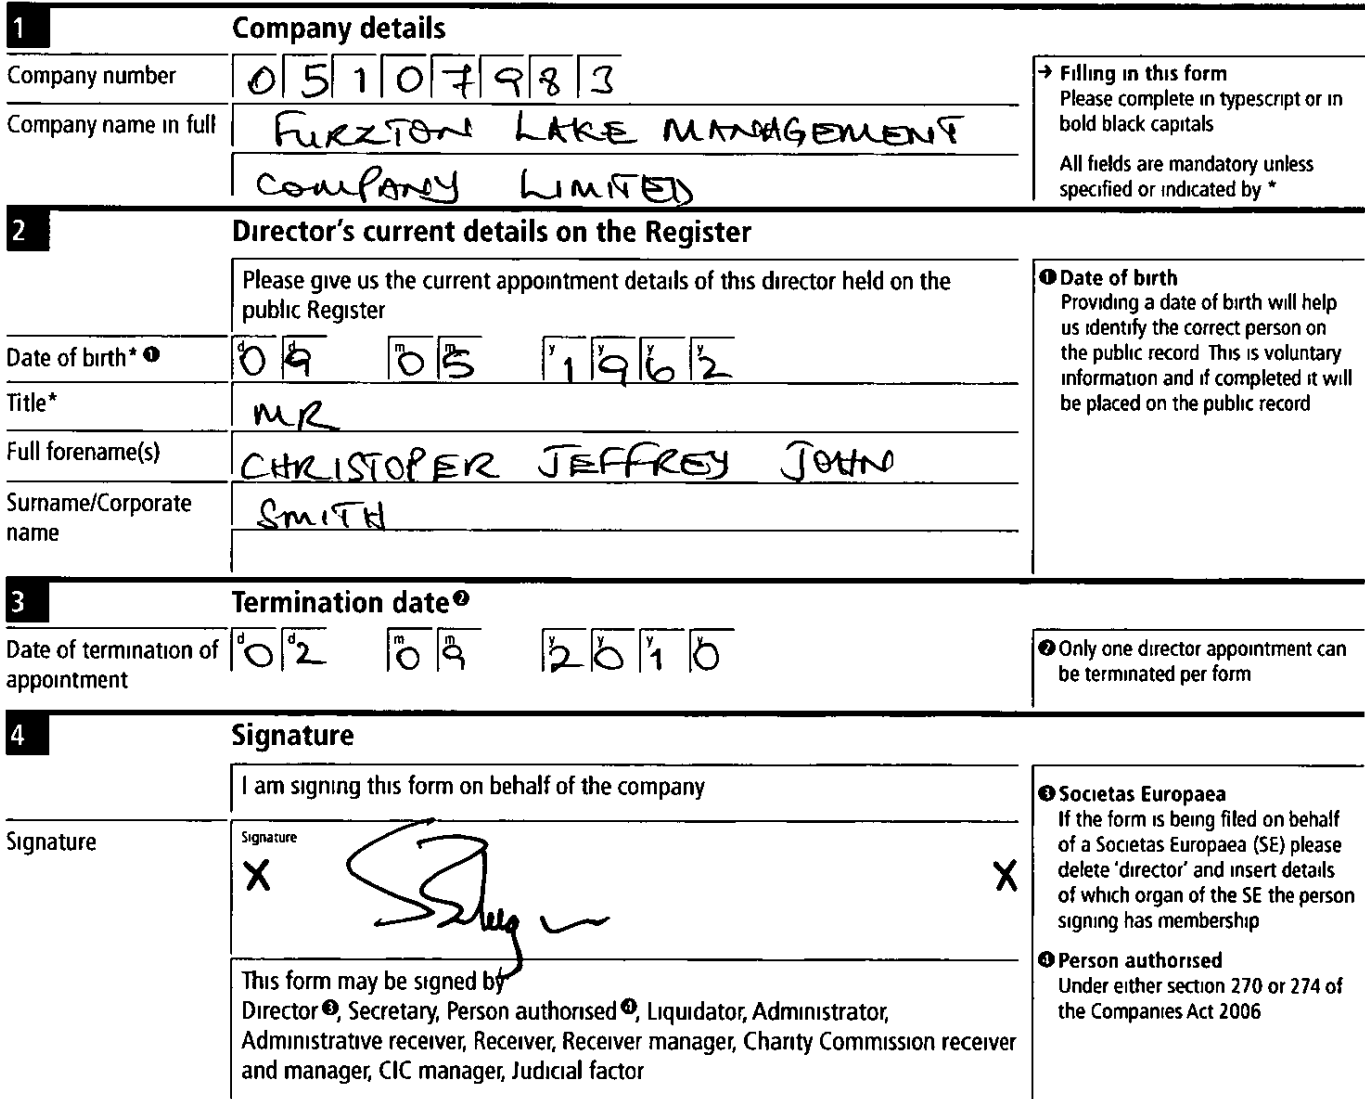 1 Company details
Company number 0 5 1 0 7 9 8 3
Company name in full FURZTON LAKE MANAGEMENT
COMPANY LIMITED
→ Filling in this form
Please complete in typescript or in
bold black capitals
All fields are mandatory unless
specified or indicated by *
2 Director's current details on the Register
Please give us the current appointment details of this director held on the
public Register
Date of birth* ❶ d0 d9 m0 m5 y1 y9 y6 y2
Title* MR
Full forename(s) CHRISTOPER JEFFREY JOHN
Surname/Corporate
name
SMITH
❶ Date of birth
Providing a date of birth will help
us identify the correct person on
the public record This is voluntary
information and if completed it will
be placed on the public record
3 Termination date❷
Date of termination of
appointment
d0 d2 m0 m9 y2 y0 y1 y0
❷ Only one director appointment can
be terminated per form
4 Signature
I am signing this form on behalf of the company
Signature
Signature
X X
This form may be signed by
Director❸, Secretary, Person authorised❹, Liquidator, Administrator,
Administrative receiver, Receiver, Receiver manager, Charity Commission receiver
and manager, CIC manager, Judicial factor
❸ Societas Europaea
If the form is being filed on behalf
of a Societas Europaea (SE) please
delete 'director' and insert details
of which organ of the SE the person
signing has membership
❹ Person authorised
Under either section 270 or 274 of
the Companies Act 2006